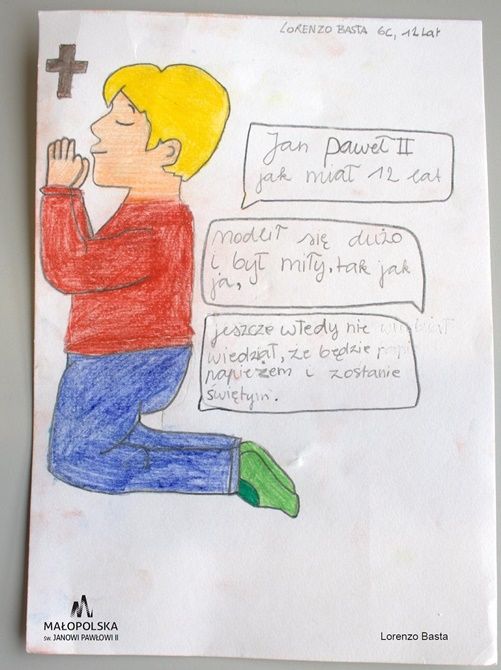 LORENZO BASTA 6C, 12 lat
Jan Paweł II
jak miał 12 lat
modlił się dużo
i był miły, tak jak
ja,
jeszcze wtedy nie
wiedział, że będzie
papieżem i zostanie
świętym.
MAŁOPOLSKA
ŚW. JANOWI PAWŁOWI II
Lorenzo Basta